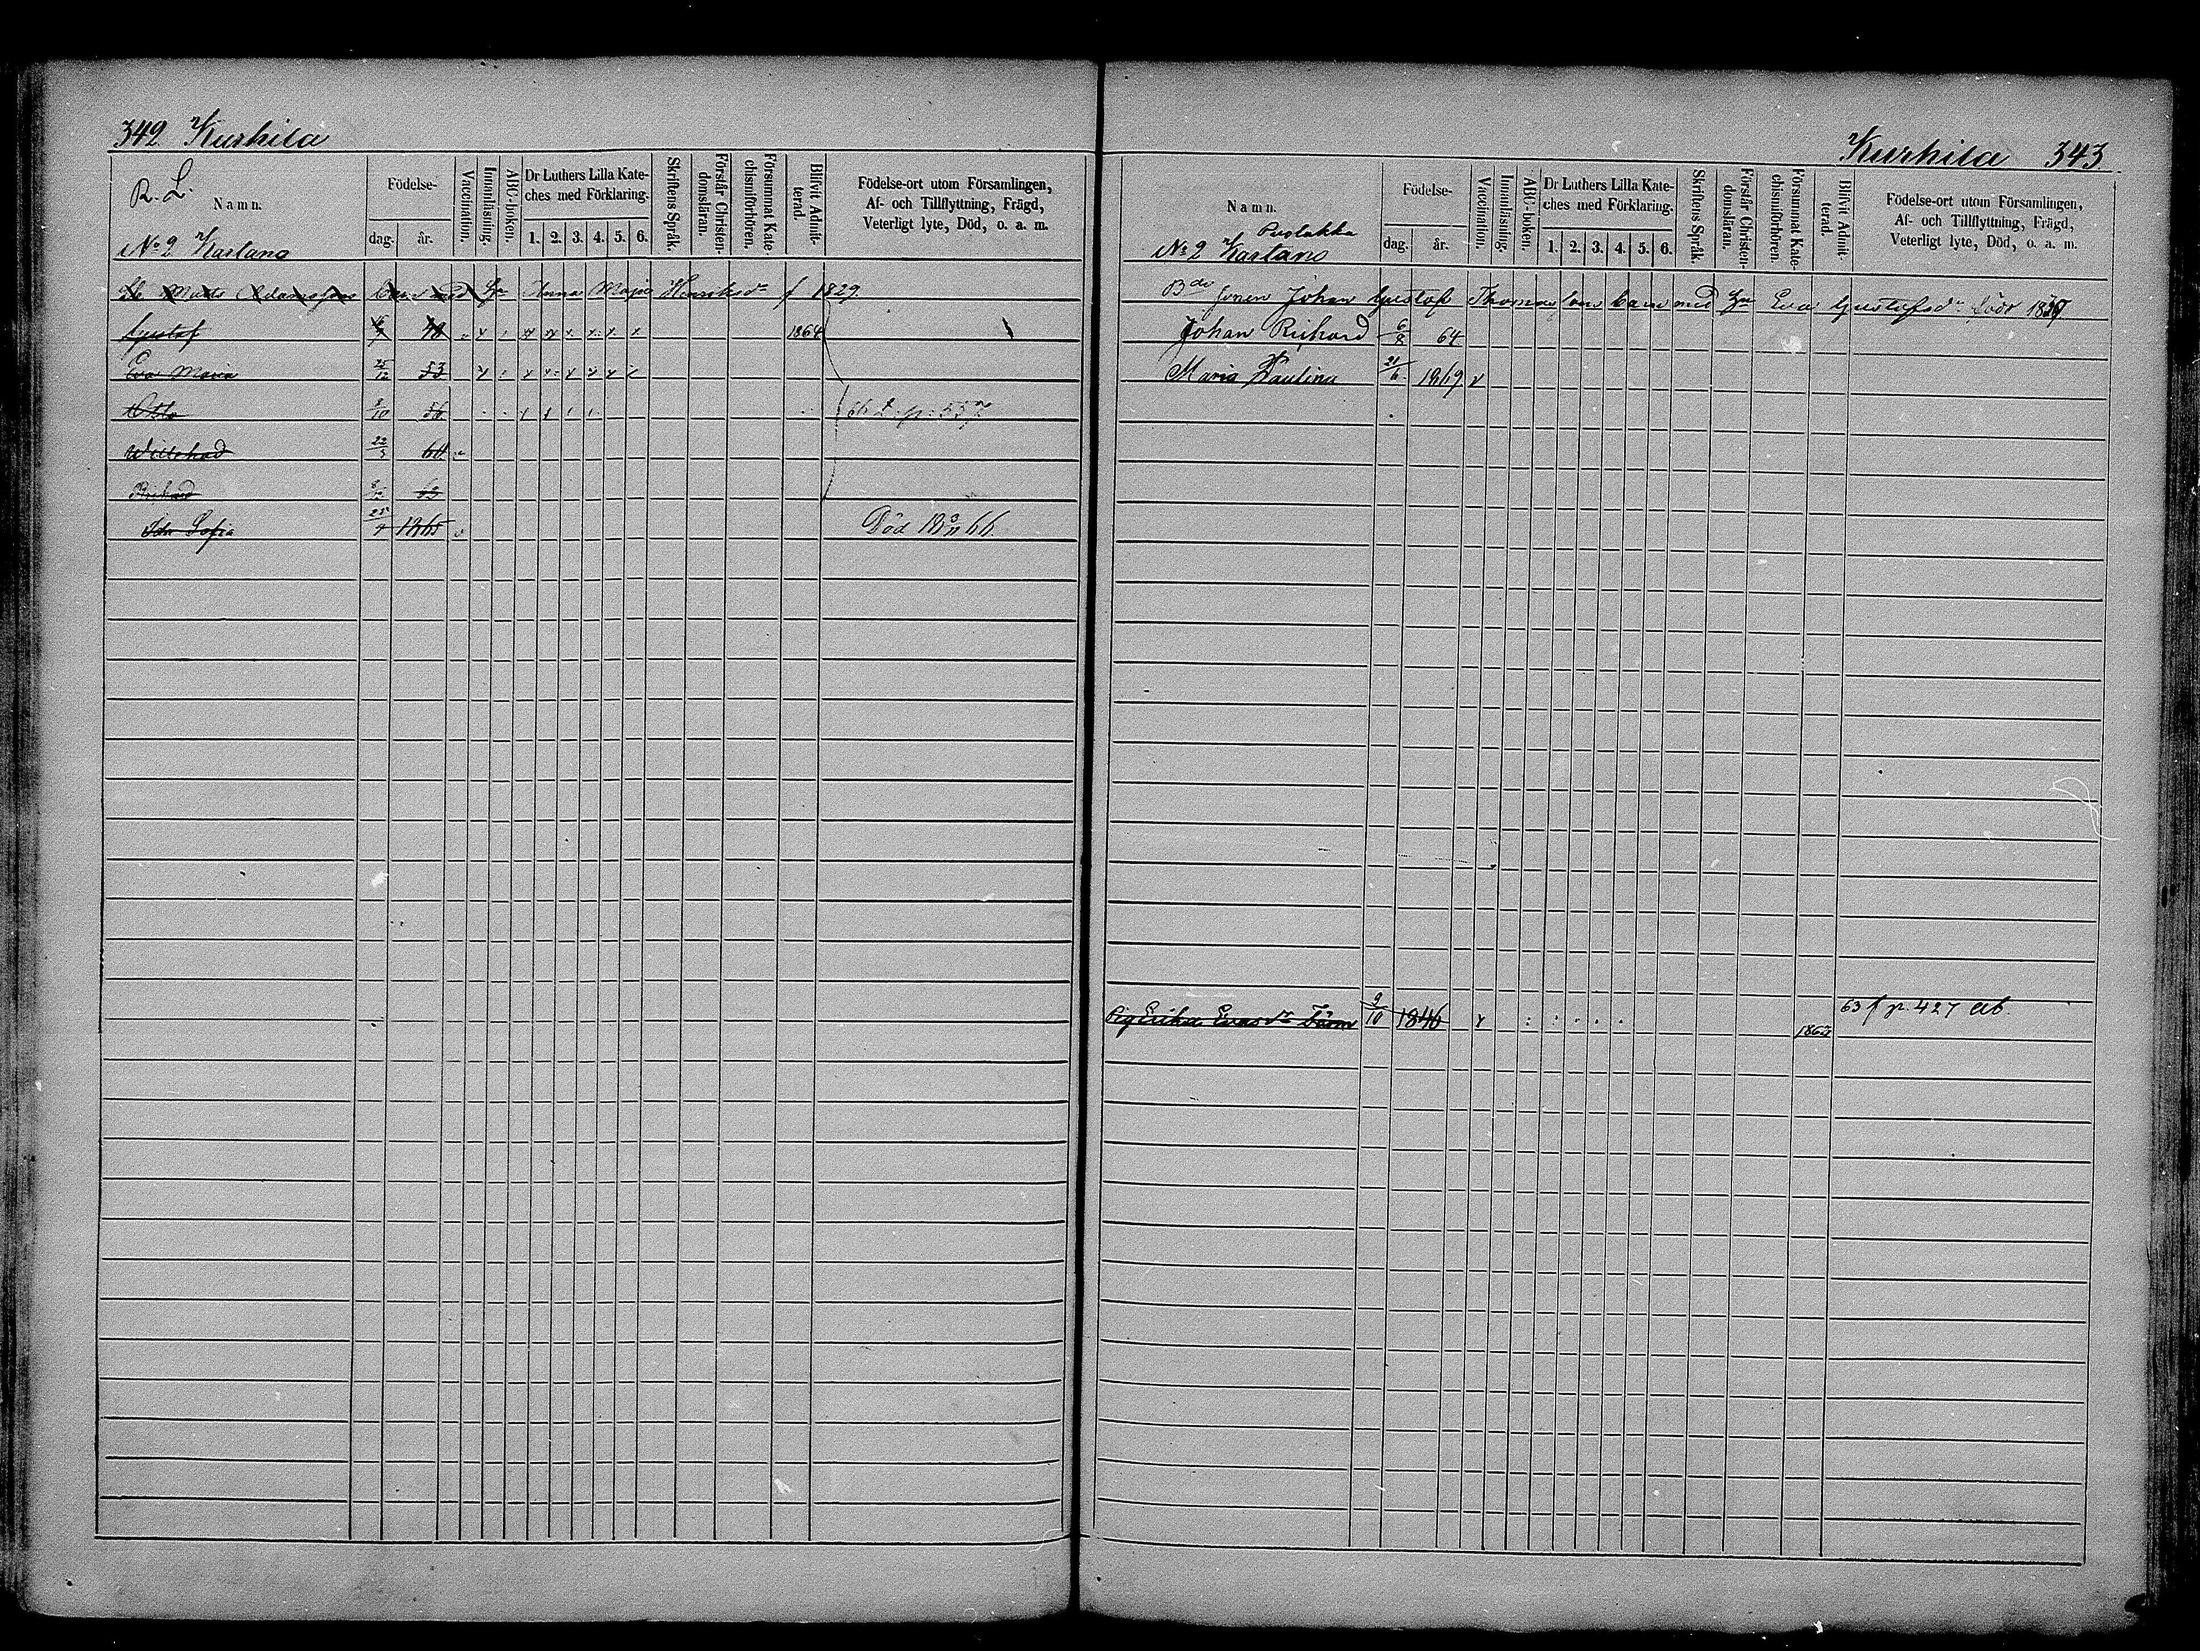 342 Kurhila
R. L.
Namn.
Födelse-
dag. år.
Vaccination.
Innanläsning.
ABC-boken.
Dr Luthers Lilla Kate-
ches med Förklaring.
1. 2. 3. 4. 5. 6.
Skriftens Språk.
Förstår Christen-
domsläran.
Försummat Kate-
chismiförhören.
Blifvit Admit-
terad.
Födelse-ort utom Församlingen,
Af- och Tillflyttning, Frägd,
Veterligt lyte, Död, o. a. m.
No 2 Kartano
Matts Adamsson barn med Hu Anna Maja Henriksdr f 1829
Gustaf 1864
Eva Maria 25/12 53
Otto 56
Willehad 22/3 60
Rickard 63
Ida Sofia 25 1865 Död 66.
Kurhila 343.
Namn.
Födelse-
dag. år.
Vaccination.
Innanläsning.
ABC-boken.
Dr Luthers Lilla Kate-
ches med Förklaring.
1. 2. 3. 4. 5. 6.
Skriftens Språk.
Förstår Christen-
domsläran.
Försummat Kate-
chismiförhören.
Blifvit Admit-
terad.
Födelse-ort utom Församlingen,
Af- och Tillflyttning, Frägd,
Veterligt lyte, Död, o. a. m.
Puolakka
No 2 Kartano
Bde sonen Johan Gustaf Thomasson barn med Hu Eva Gustafsdr född
Johan Richard 6/8 64
Maria Paulina 21/6 1869
Pig Erika Evasdr 9/10 1846 63 p. 427